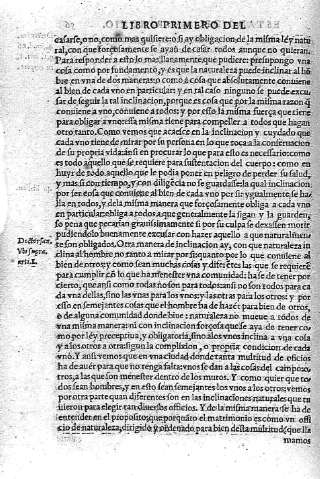 LIBRO PRIMERO DEL
casarse, o no, como mas quisiere: o si ay obligacion de la misma ley natu
ral, con que forçosamente se ayan de casar todos aunque no quieran.
Para responder a esto lo mas llanamente que pudiere: presupongo vna
cosa como por fundamento, y es que la naturaleza puede inclinar al hõ
bre en vna de dos maneras: o como a cosa que absolutamente conuiene
al bien de cada vno en particular: y en tal caso ninguno se puede escu-
sar de seguir la tal inclinacion, porque es cosa que por la misma razon q̃
conuiene a vno, conuiene a todos: y por esso la misma fuerça que tiene
para obligar a vno essa misma tiene para compeller a todos que hagan
otro tanto. Como vemos que acaesce en la inclinacion y cuydado que
cada vno tiene de mirar por su persona en lo que toca a la conseruacion
de su propia vida: assi en procurar lo que para esto es necessario: como
es todo aquello que se requiere para sustentacion del cuerpo: como en
huyr de todo aquello que le podia poner en peligro de perder su salud,
y mas si
por ser cosa que conuiene al bien de cada vno por si: ygualmente se ha-
lla en todos, y dela misma manera que forçosamente obliga a cada vno
en particular: obliga a todos, a que generalmente la sigan y la guarden,
so pena que pecarian grauissimamente si por su culpa se dexassen morir
pudiendolo buenamente escusar: con hazer aquello a que naturalmen-
te son obligados. Otra manera de inclinacion ay, con que naturaleza in
clina al hombre no tanto a mirar por si: quanto por lo que conuiene al
bien de otros: y como sean muchas cosas y diferentes las que se requierẽ
para cumplir cõ lo que ha menester vna comunidad: ha se de tener por
cierto, que ansi como todas no son para todos: ansi no son todos para ca
da vna dellas, sino las vnas para los vnos: y las otras para los otros: y por
esso en semejantes cosas que el hombre ha de hazer para bien de otros,
o de alguna comunidad donde biue: naturaleza no mueue a todos de
vna misma manera: ni con inclinacion forçosa que se aya de tener co-
mo por ley preceptiua, y obligatoria, sino a los vnos inclina a vna cosa
y a los otros a otra: segun la complision, o propria condicion de cada
vno. Y ansi vemos que en vna ciudad donde tanta multitud de oficios
ha de auer para que no tenga falta: vnos se dan a las cosas del campo: o-
tros, a las que son menester dentro de los muros. Y como quier que to-
dos sean hombres, y en esto sean semejantes los vnos a los otros: vemos
por otra parte quan diferentes son en las inclinaciones naturales que tu
uieron para elegir tan diuersos officios. Y de la misma manera se ha de
entender en el proposito: que porque el matrimonio es como vn offi
cio de naturaleza, dirigido y ordenado para bien desta multitud, que lla
mamos
Doctor san.
Vbi supra.